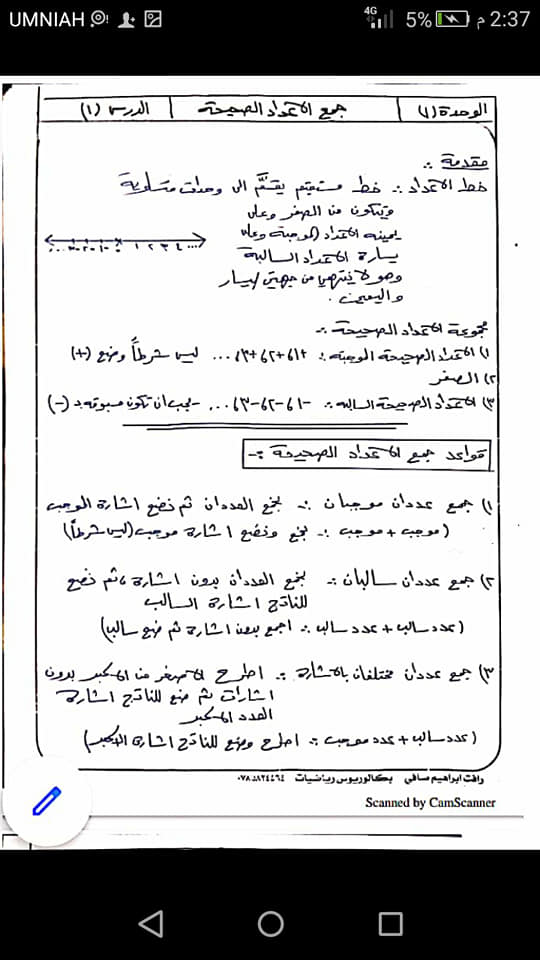 UMNIAH
4G
5%
2:37 م
الوحدة (١) جمع الاعداد الصحيحة الدرس (١)
مقدمة :-
خط الاعداد :- خط مستقيم يقسَّم الى وحدات متساوية
ويتكون من الصفر وعلى
يمينه الاعداد الموجبة وعلى
يسارة الاعداد السالبة
وهو لا ينتهي من جهتي اليسار
واليمين .
مجموعة الاعداد الصحيحة :-
١) الاعداد الصحيحة الموجبة :- +١، +٢، +٣، ... ليس شرطاً وضع (+)
٢) الصفر
٣) الاعداد الصحيحة السالبة :- -١، -٢، -٣، ... - يجب أن تكون مسبوقه بـ (-)
قواعد جمع الاعداد الصحيحة :-
١) جمع عددان موجبان :- نجمع العددان ثم نضع اشارة الموجب
(موجب + موجب :- نجمع ونضع اشارة موجب (ليس شرطاً)
٢) جمع عددان سالبان :- نجمع العددان بدون اشارة ، ثم نضع
للناتج اشارة السالب
(عدد سالب + عدد سالب :- اجمع بدون اشارة ثم ضع سالب)
٣) جمع عددان مختلفان بالاشارة :- اطرح الاصغر من الاكبر بدون
اشارات ثم ضع للناتج اشارة
العدد الاكبر
(عدد سالب + عدد موجب :- اطرح وضع للناتج اشارة الاكبر)
رافت ابراهيم صافي بكالوريوس رياضيات
Scanned by CamScanner